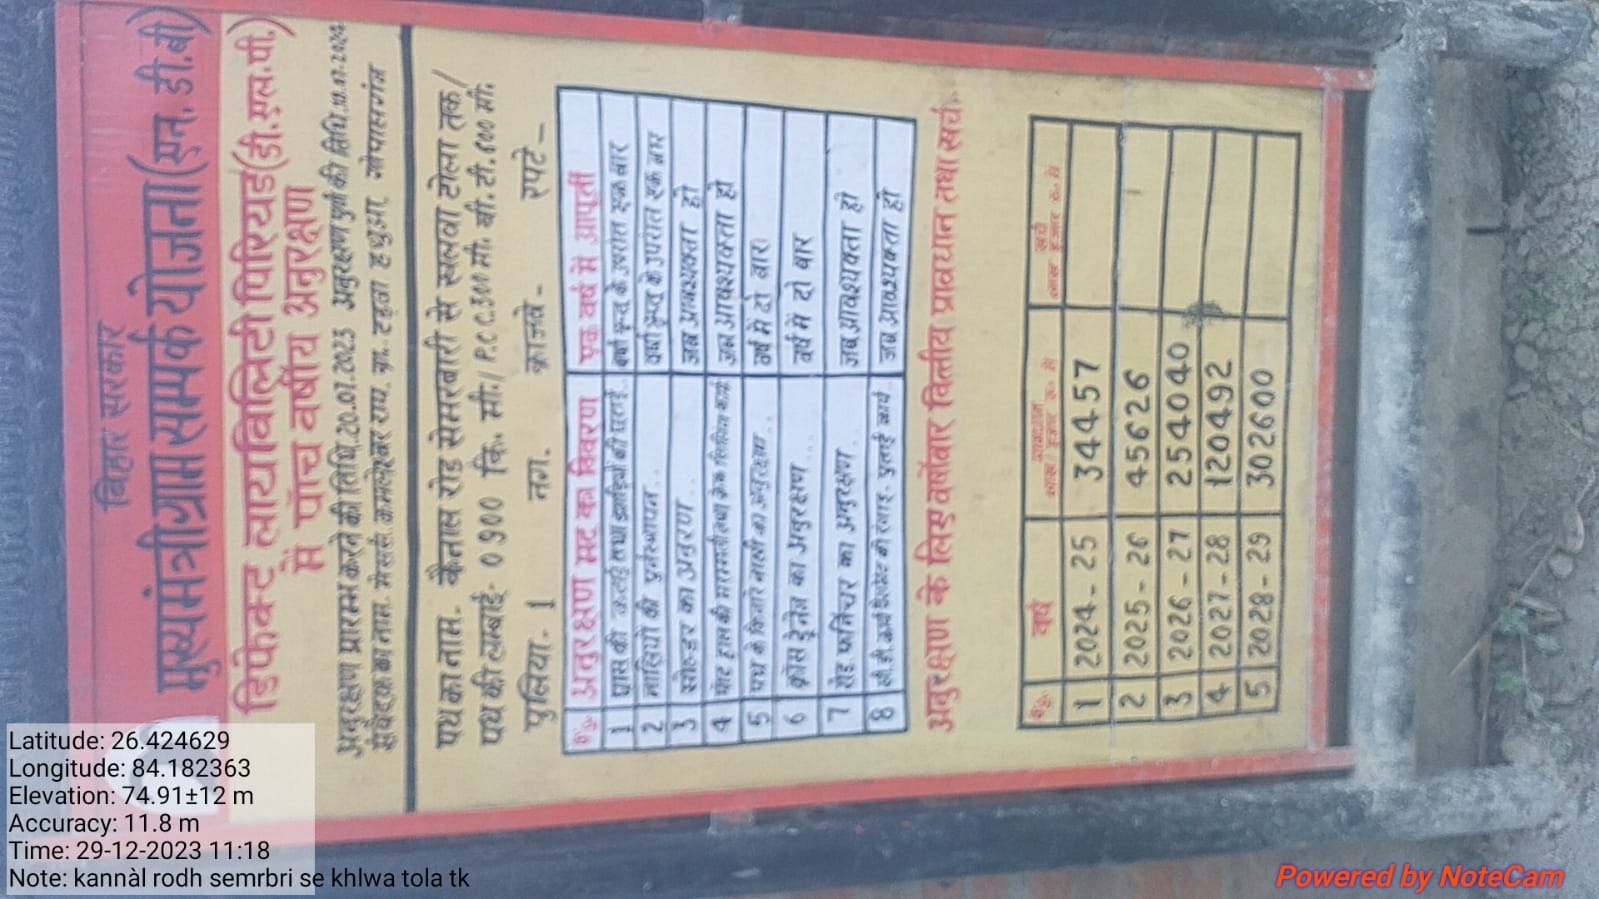 बिहार सरकार
मुख्यमंत्री ग्राम सम्पर्क योजना(एन. डी.बी)
डिफेक्ट लायबिलिटी पिरियड(डी.एल.पी.)
में पाँच वर्षीय अनुरक्षण
अनुरक्षण प्रारम्भ करने की तिथि. 20.07.2023 अनुरक्षण पूर्ण की तिथि.
संवेदक का नाम. मेसर्स. कमलेश्वर राय. ग्रा.- टड़वा हथुआ, गोपालगंज
पथ का नाम. कैनाल रोड सेमरबारी से खलवा टोला तक/
पथ की लम्बाई- 0.900 कि. मी./ P.C.C.300 मी. बी. टी. 600 मी.
पुलिया. 1 नग. क्राजवे - रपटे -
क्र. अनुरक्षण मद का विवरण एक वर्ष में आपूर्ती
1 घास की कटाई तथा झाड़ियों की छटाई.. वर्षा ऋतु के उपरांत एक बार
2 नालियों की पुर्नस्थापन.. वर्षा ऋतु के उपरांत एक बार
3 सोल्डर का अनुरण.. जब आवश्यक्ता हो
4 पॉट हाल की मारामती तथा क्रेक सिलिंग कार्य जब आवश्यक्ता हो
5 पथ के किनारे नाली का अनुरक्षण.. वर्ष में दो बार
6 क्रोस ड्रेनेज का अनुरक्षण... वर्ष में दो बार
7 रोड फर्निचर का अनुरक्षण. जब आवश्यक्ता हो
8 सी.डी.कार्य पुताई कार्य जब आवश्यक्ता हो
अनुरक्षण के लिए वर्षोवार वित्तीय प्रावधान तथा खर्च.
क्र. वर्ष प्रावधान लाख/हजार रु. में खर्च लाख हजार रु. में
1 2024-25 34457
2 2025-26 45626
3 2026-27 254040
4 2027-28 120492
5 2028-29 302600
Latitude: 26.424629
Longitude: 84.182363
Elevation: 74.91±12 m
Accuracy: 11.8 m
Time: 29-12-2023 11:18
Note: kannàl rodh semrbri se khlwa tola tk
Powered by NoteCam